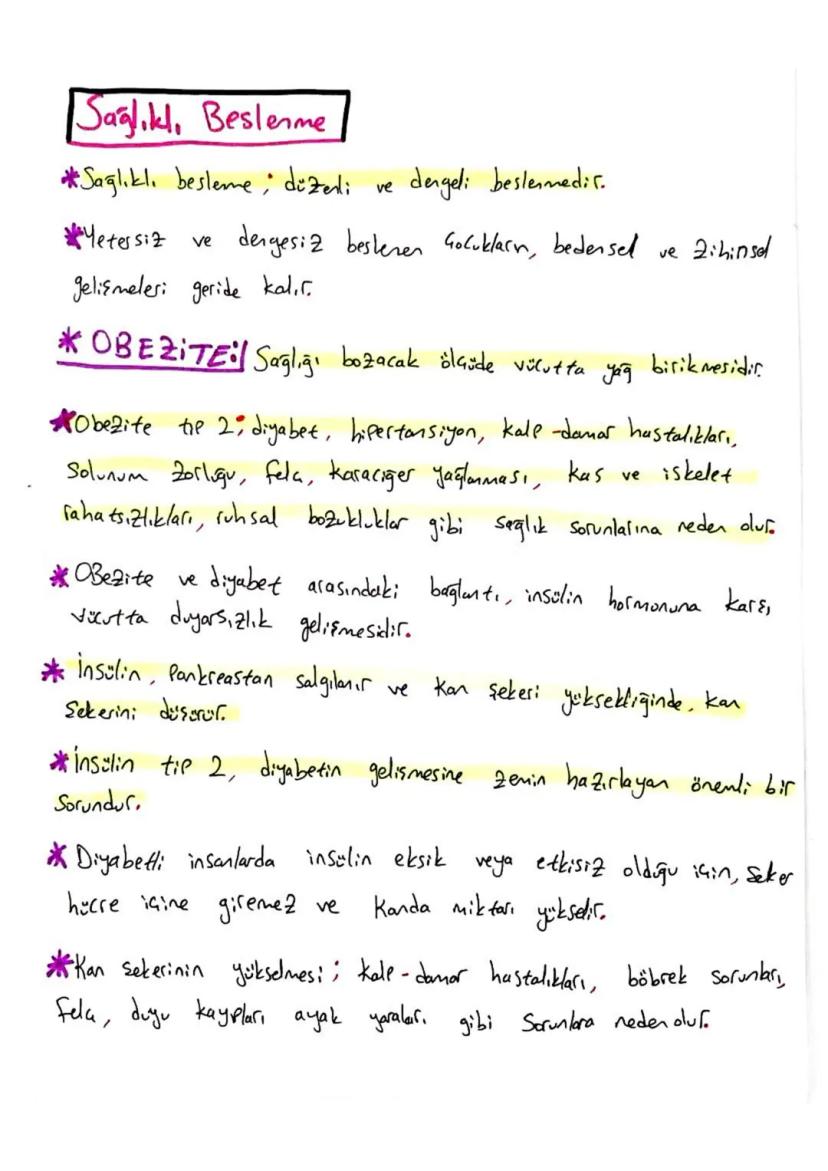 Sağlıklı Beslenme
*Sağlıklı besleme; düzenli ve dengeli beslenmedir.
*Yetersiz ve dengesiz beslenen çocukların, bedensel ve zihinsel
gelişmeleri geride kalır.
* OBEZİTE: Sağlığı bozacak ölçüde vücutta yağ birikmesidir.
*Obezite tip 2; diyabet, hipertansiyon, kalp-damar hastalıkları,
Solunum zorluğu, felç, karaciğer yağlanması, kas ve iskelet
rahatsızlıkları, ruhsal bozukluklar gibi sağlık sorunlarına neden olur.
* OBezite ve diyabet arasındaki bağlantı, insülin hormonuna karşı
vücutta duyarsızlık gelişmesidir.
* İnsülin, Pankreastan salgılanır ve Kan şekeri yüksekliğinde, kan
Şekerini düşürür.
*İnsülin tip 2, diyabetin gelişmesine zemin hazırlayan önemli bir
Sorundur.
* Diyabetli insanlarda insülin eksik veya etkisiz olduğu için, Şeker
hücre içine giremez ve Kanda miktarı yükselir.
*Kan şekerinin yükselmesi; kalp-damar hastalıkları, böbrek sorunları,
felç, duyu kayıpları ayak yaraları gibi Sorunlara neden olur.